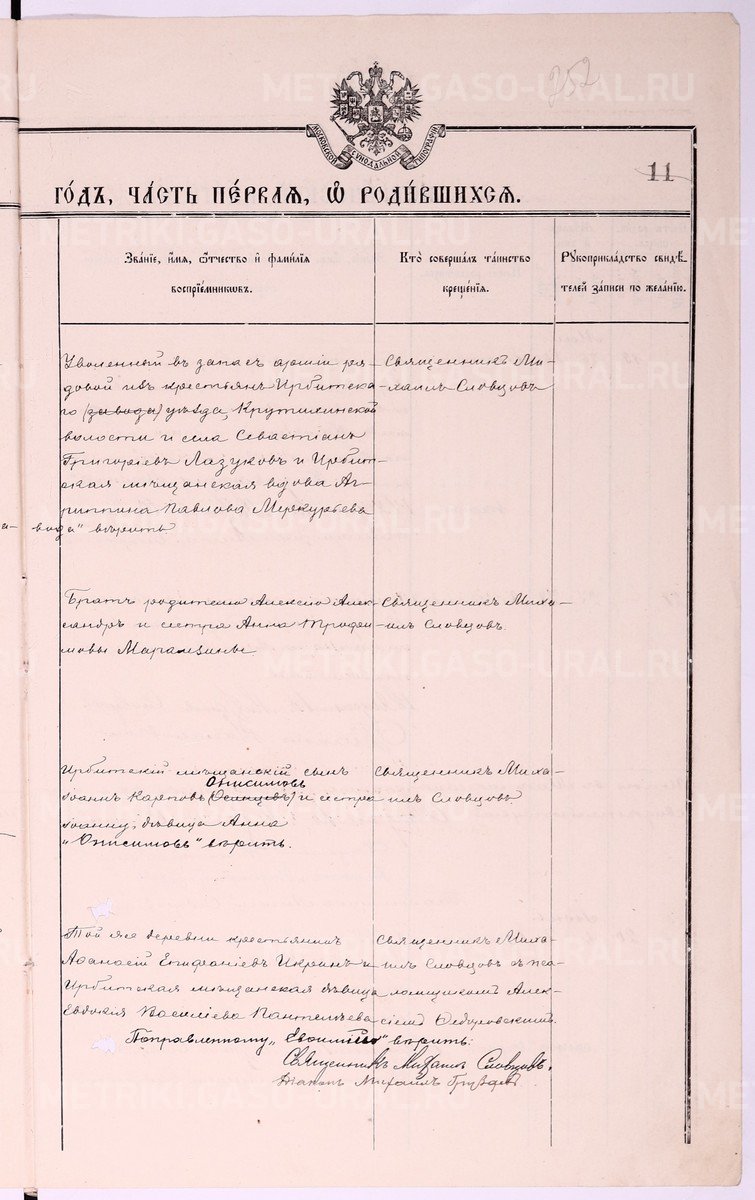 252
МОСКОВСКОЙ СѴНОДАЛЬНОЙ ТИПОГРАФІИ
11
ГО́ДЪ, ЧА́СТЬ ПЕ́РВАЯ, Ѽ РОДИ́ВШИХСЯ.
Зва́ніе, и́мя, ѻ҆́тчество и҆ фами́лія воспріе́мниковъ.
Кто̀ соверша́лъ та́инство креще́нія.
Рꙋкоприкла́дство свидѣ́телей за́писи по жела́нію.
Уволенный въ запасъ арміи ря-
довой изъ крестьянъ Ирбитска-
го (завода) уѣзда, Крутихинской
волости и села Севастіанъ
Григоріевъ Лазуковъ и Ирбит-
ская мѣщанская вдова Аг-
риппина Павлова Меркурьева
вода" вѣрить
Священникъ Ми-
хаилъ Словцовъ
Братъ родителю Алексію Алек-
сандръ и сестра Анна Трофи-
мовы
Священникъ Миха-
илъ Словцовъ.
Ирбитскій мѣщанскій сынъ
Онисимовъ
Іоаннъ Карповъ и сестра
Іоанну, дѣвица Анна
"Онисимовъ" вѣрить.
Священникъ Миха-
илъ Словцовъ
Той же деревни крестьянинъ
Афанасій Епифаніевъ и
Ирбитская мѣщанская дѣвица
Евдокія Василіева Пантелѣева
Священникъ Миха-
илъ Словцовъ съ пса-
ломщикомъ Алек-
сіемъ Ѳедоровскимъ.
Поправленному вѣрить:
Священникъ Михаилъ Словцовъ.
Діаконъ Михаилъ
METRIKI.GASO-URAL.RU